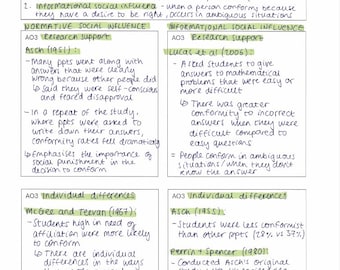 2. Informational social influence - when a person conforms because
they have a desire to be right, occurs in ambiguous situations
NORMATIVE SOCIAL INFLUENCE
AO3 Research Support
Asch (1951):
- Many ppts went along with
answers that were clearly
wrong because other people did
↳ Said they were self-conscious
and feared disapproval
- In a repeat of the study,
where ppts were asked to
write down their answers,
conforming rates fell dramatically
↳ Emphasises the importance of
social punishment in the
decision to conform
INFORMATIONAL SOCIAL INFLUENCE
AO3 Research Support
Lucas et al (2006):
- Asked students to give
answers to mathematical
problems that were easy or
more difficult
↳ There was greater
conformity to incorrect
answers when they were
difficult compared to
easy questions
= People conform in ambiguous
situations / when they don't
know the answer
AO3 Individual differences
McGee and Teevan (1967):
- Students high in need of
affiliation were more likely
to conform
↳ There are individual
differences in the ways
AO3 Individual differences
Asch (1955):
- Students were less conformist
than other ppts (28% vs 37%)
Perrin + Spencer (1980):
- Conducted Asch's original